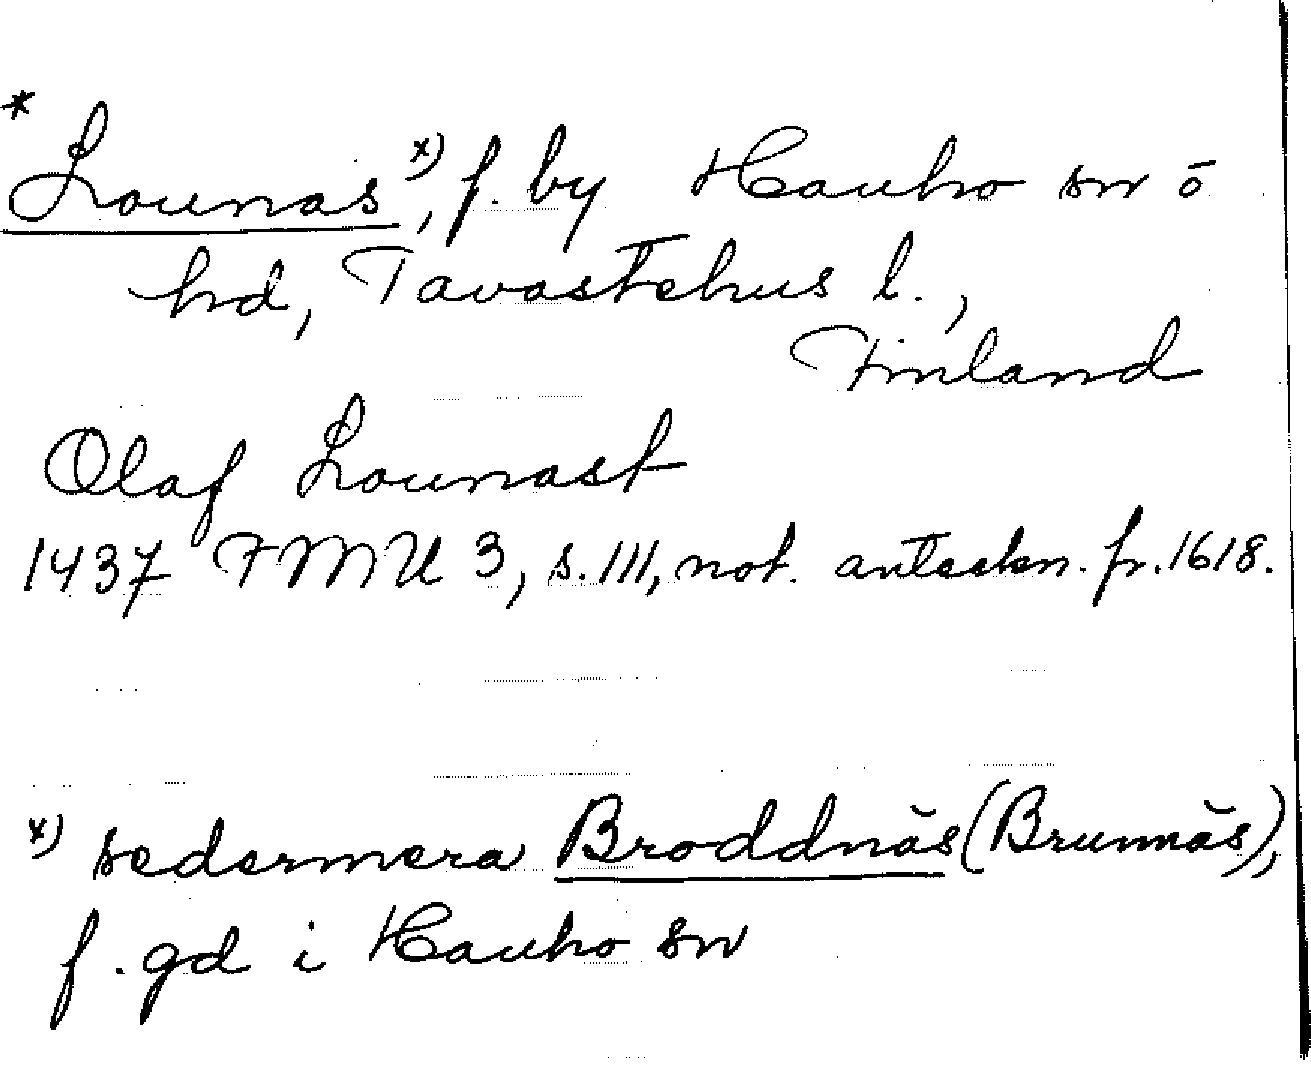 * Lounas x), f. by Hauho sn o
hd, Tavastehus l.,
Finland
Olaf Lounast
1437 FMU 3, s. 111, not. anteckn. fr. 1618.
x) sedermera Broddnäs (Brunnäs),
f. gd i Hauho sn